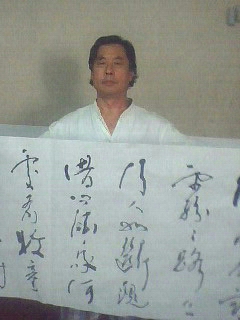 雨紛々路上
行人欲斷魂
借問酒家何
處有牧童